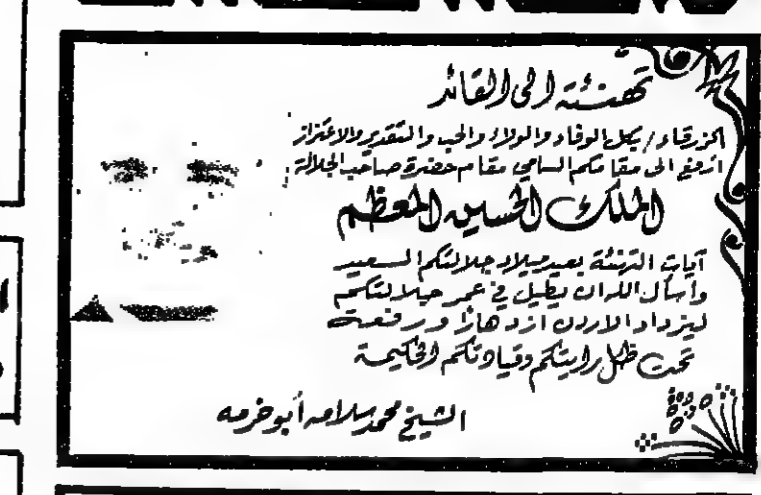 تهنئة الى القائد
الزرقاء / بكل الوفاء والولاء والحب والتقدير والاعتزاز
ارفع الى مقامكم السامي مقام حضرة صاحب الجلالة
الملك الحسين المعظم
آيات التهنئة بعيد ميلاد جلالتكم السعيد
وأسأل الله ان يطيل في عمر جلالتكم
ليزداد الاردن ازدهارًا ورفعة
تحت ظل رايتكم وقيادتكم الحكيمة
الشيخ محمد سلامه أبو خرمه